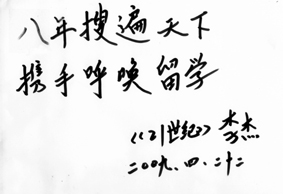 八年搜遍天下
携手呼唤留学
《21世纪》 李杰
二〇〇九.四.二十二